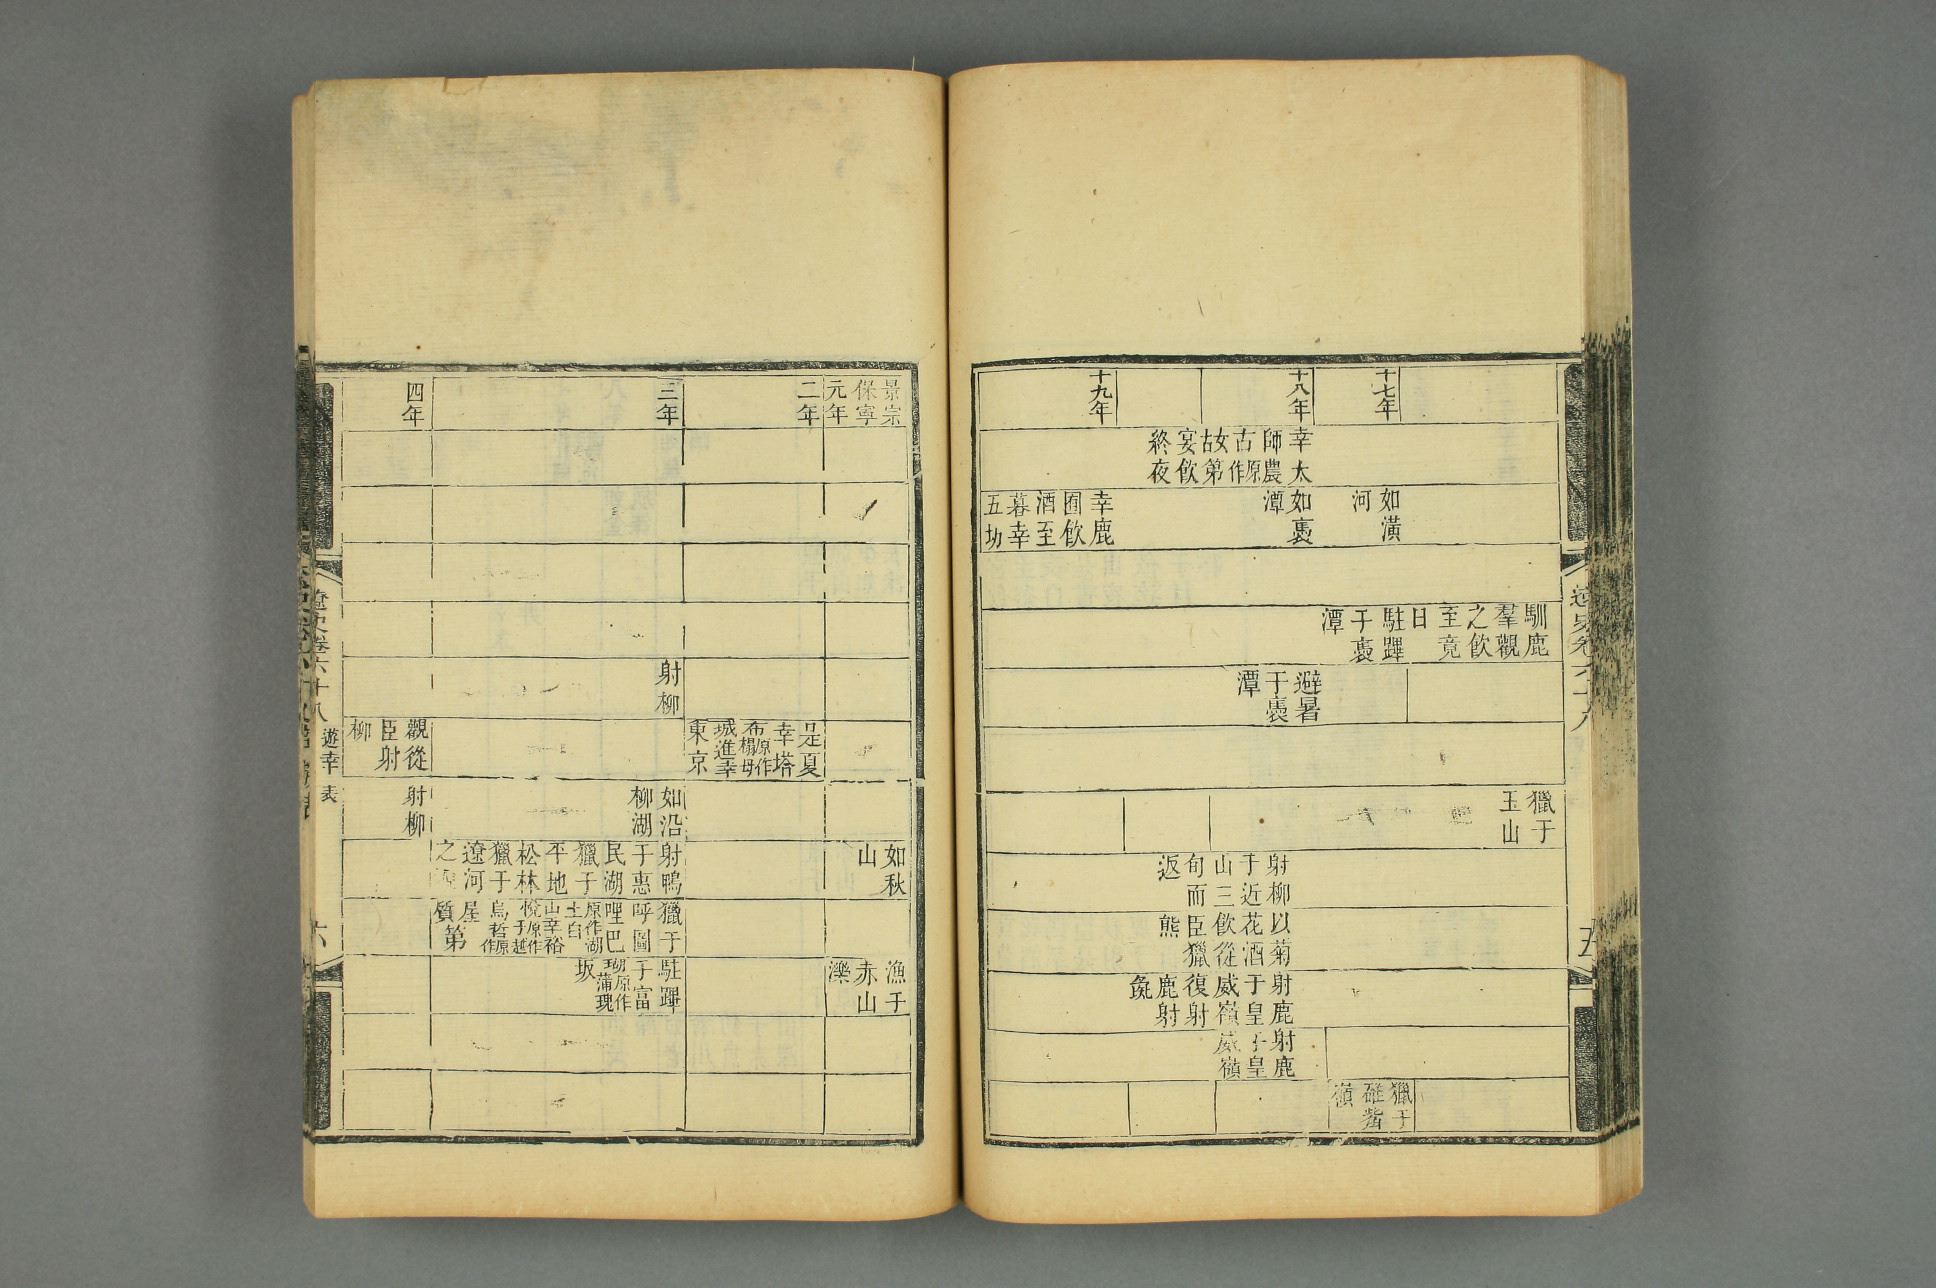 十七年
十八年
十九年
幸太
師農
古原作
故女第
宴飲
終夜
如潢
河
如褭
潭
幸鹿
囿飲
酒至
暮幸
五坊
馴鹿
羣觀
之飲
至竟
日
駐蹕
于褭
潭
避暑
于褭
潭
獵于
玉山
射柳
于近
山三
旬而
返
以菊
花酒
飲從
臣獵
熊
射鹿
于皇
威嶺
復射
鹿射
麁
射鹿
于皇
威嶺
獵于
碓觜
嶺
遼史卷六十八
五
景宗
保寧
元年
二年
三年
四年
射柳
是夏
幸塔
布原作榻母
城進幸
東京
觀從
臣射
柳
如沿
柳湖
射柳
如秋
山
射鴨
于惠
民湖
獵于
平地
松林
獵于
遼河
之
獵于
呼圖
哩巴
原作湖土白
山幸裕
悅原作于越
烏哲原作
屋質第
漁于
赤山
濼
駐蹕
于富
瑚原作蒲瑰
坂
遼史卷六十八
遊幸表
六